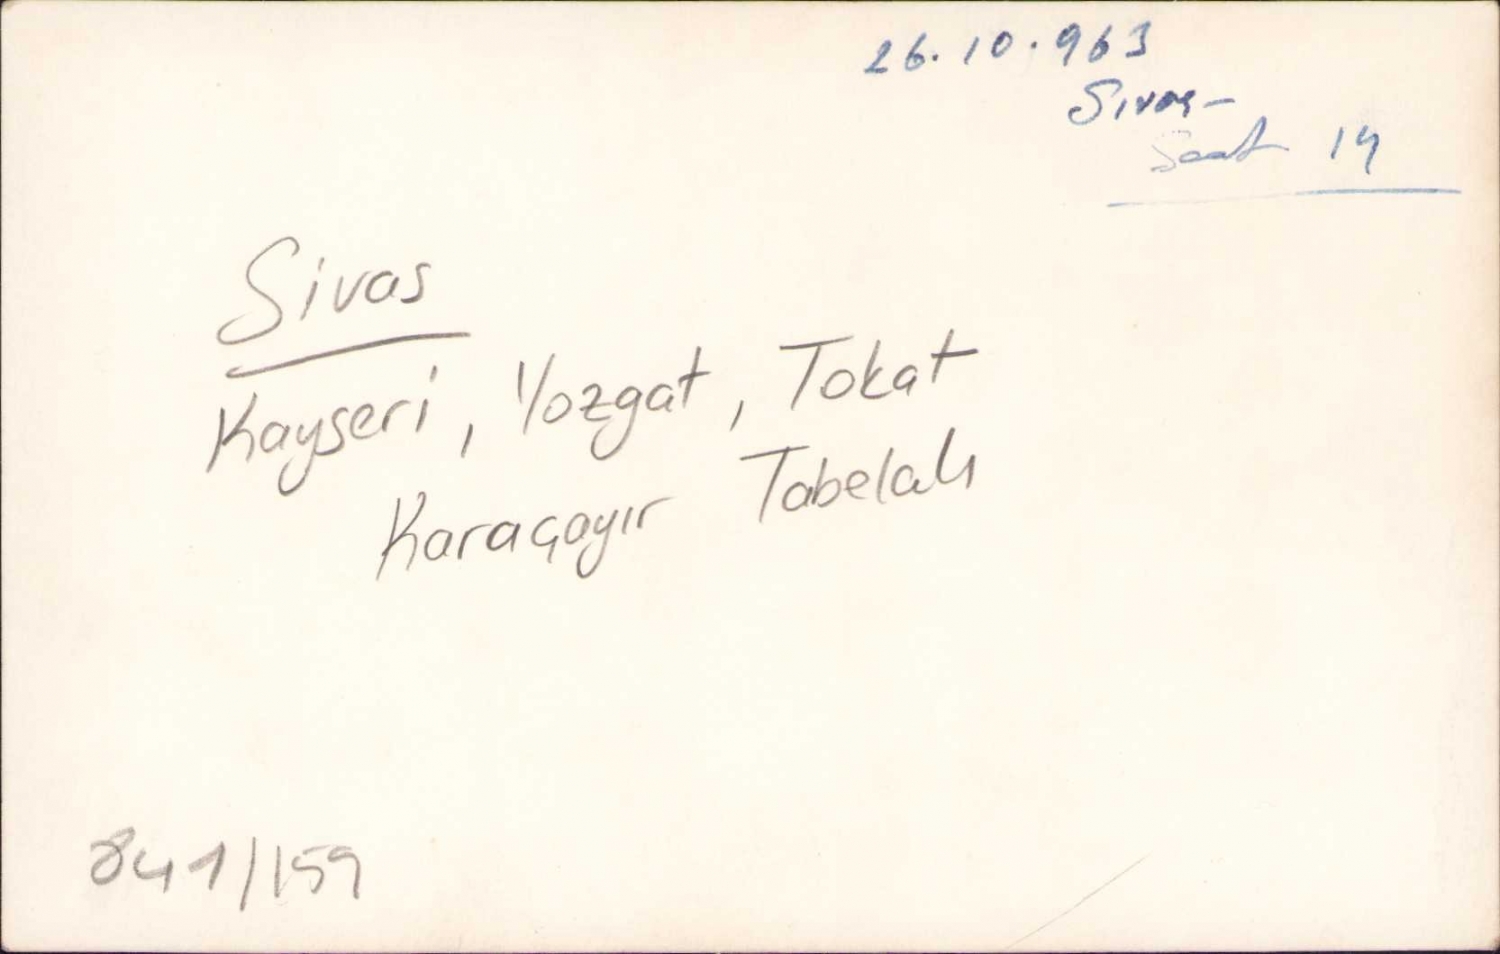 26.10.963
Sivas-
Saat 14
Sivas
Kayseri, Yozgat, Tokat
Karaçayır Tabelalı
841/159